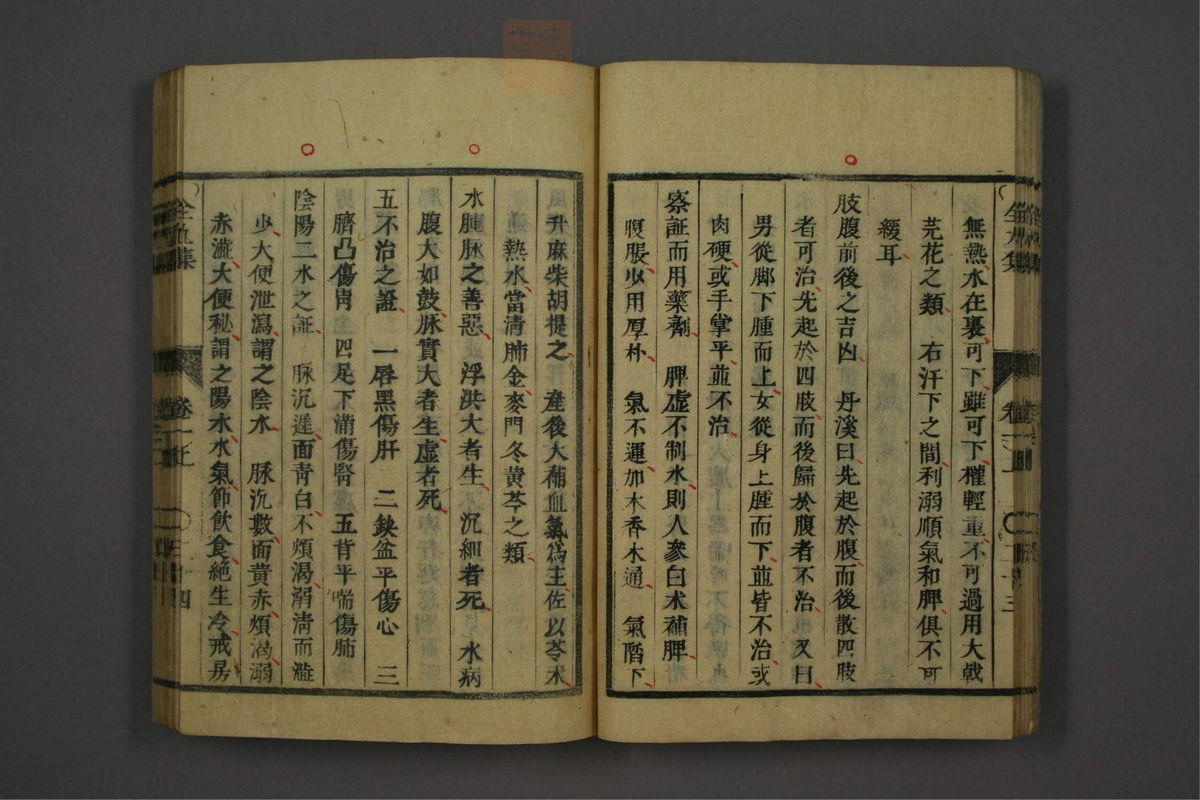 無熱水在裏可下雖可下權輕重不可過用大戟
芫花之類　右汗下之間利溺順氣和脾俱不可
緩耳
肢腹前後之吉凶　丹溪曰先起於腹而後散四肢
者可治先起於四肢而後歸於腹者不治　又曰
男從脚下腫而上女從身上腫而下並皆不治或
肉硬或手掌平並不治
察証而用藥劑　脾虚不制水則人參白朮補脾
腹脹少用厚朴　氣不運加木香木通　氣陷下
升麻柴胡提之　產後大補血氣爲主佐以苓朮
熱水當清肺金麥門冬黄芩之類
水腫脉之善惡　浮洪大者生　沉細者死　水病
腹大如鼓脉實大者生虚者死
五不治之證　一唇黑傷肝　二缺盆平傷心　三
臍凸傷胃　四足下滿傷腎　五背平喘傷肺
陰陽二水之証　脉沉遲面青白不煩渴溺清而澁
少大便泄瀉謂之陰水　脉沉數面黄赤煩渴溺
赤澁大便秘謂之陽水水氣節飲食絶生冷戒房
全九集
卷一上
三十四
全九集
卷一上